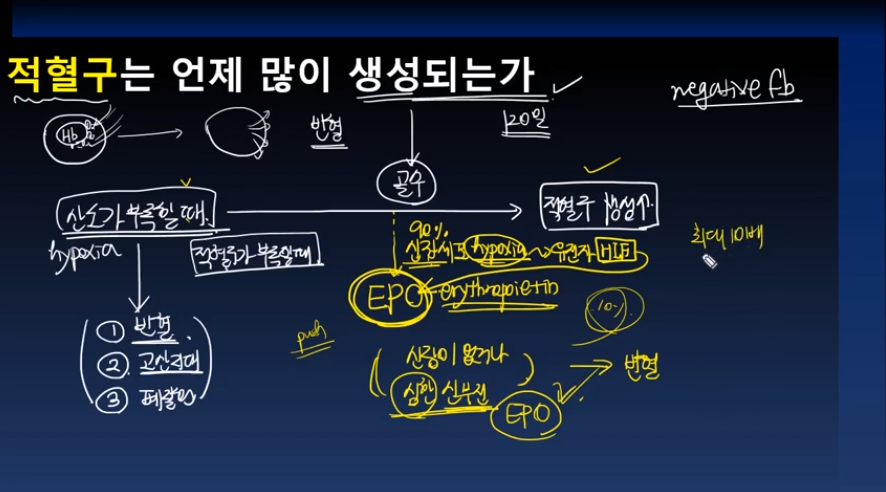 적혈구는 언제 많이 생성되는가
negative fb
Hb
빈혈
120일
골수
산소가 부족할 때
적혈구 생성↑
hypoxia
적혈구가 부족할 때
90%
신장세포 hypoxia → 유전자 HIF
최대 10배
EPO ← erythropoietin
10%
① 빈혈
② 고산지대
③ 폐질환
push
신장이 없거나
심한 신부전
EPO
빈혈